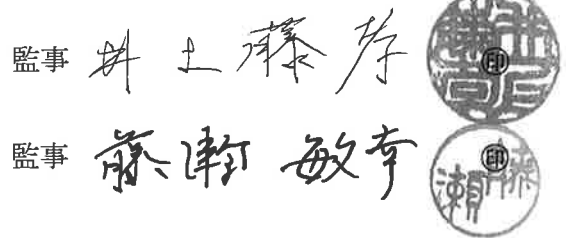 監事 井上藤 印
監事 藤瀬 敏幸 印
藤瀬